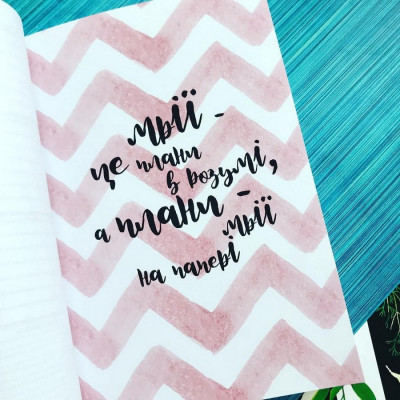 мрії -
це плани
в розумі,
а плани -
мрії
на папері